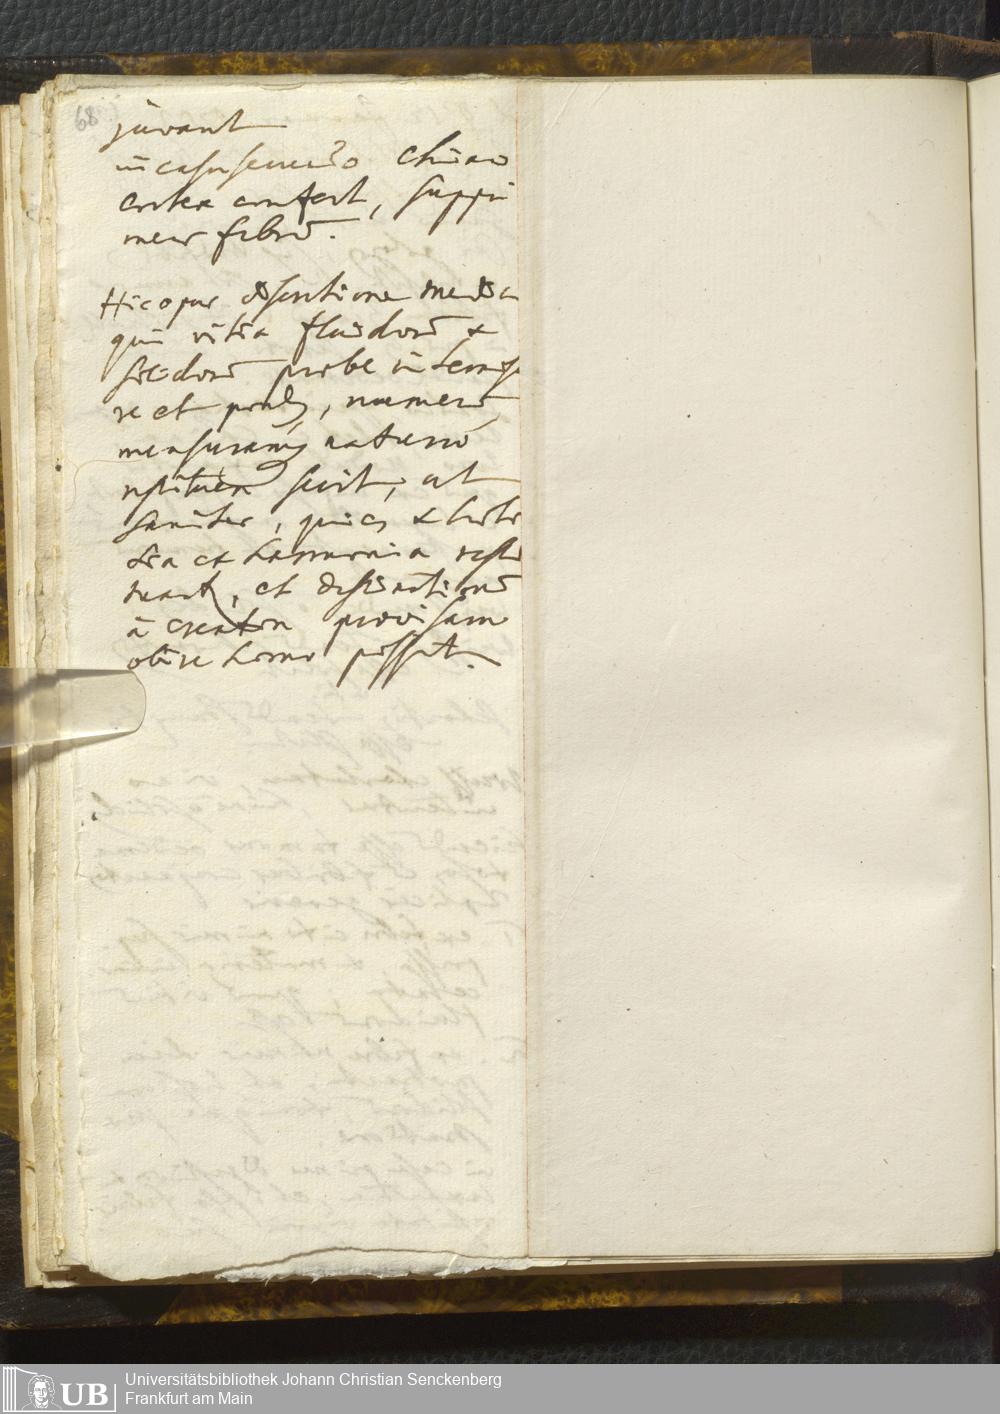 68
juvant
in casu secundo chinae
cortex confert, suppri
mens febrem.
Hic opus discretione medica
qui vitia fluidorum &
solidorum probe internosce
re et pondus, numerum,
mensuramq naturae
scivit, ut
sanitas, quies &
dia ex harmonia resti
tuatur, et destinationem
à creatore provisam
obire homo possit.
UB
Universitätsbibliothek Johann Christian Senckenberg
Frankfurt am Main